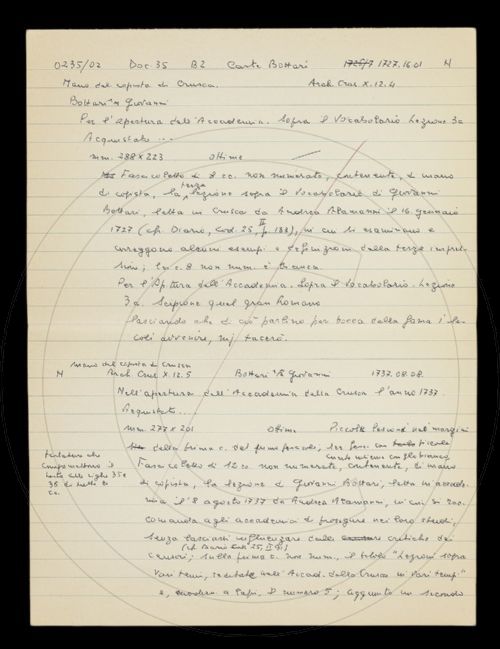 0235/02 Doc 35 B2 Carte Bottari 1727.16.01 M
Mano del copista di Crusca. Arch. Crus. X.12.4
Bottari Giovanni
Per l'apertura dell'Accademia. Sopra il Vocabolario Lezione 3a
Acquistato ...
mm. 288 x 223 ottime
Fascicoletto di 8 cc. non numerate, contenente, di mano
di copista, la terza lezione sopra il Vocabolario di Giovanni
Bottari, letta in Crusca da Andrea Alamanni il 16 gennaio
1727 (cfr. Diario, Cod. 25, II p. 183), in cui si esaminano e
correggono alcuni esempi e definizioni della terza impres-
sione; la c. 8 non num. è bianca.
Per l'Aptura dell'Accademia. Sopra il Vocabolario. Lezione
3a. Scipione quel gran Romano
lasciando che di ciò parlino per bocca della fama i se-
coli avvenire, mi tacerò.
Mano del copista di Crusca
M Arch. Crus. X.12.5 Bottari Giovanni 1737.08.08.
Nell'apertura dell'Accademia della Crusca l'anno 1737.
Acquistato...
mm. 277 x 201 ottime Piccole lesioni nei margini
della prima c. del primo fascicolo,
Fascicoletto di 12 cc. non numerate, contenente, di mano
di copista, la lezione di Giovanni Bottari, letta in accade-
mia l'8 agosto 1737 da Andrea Alamanni, in cui si rac-
comanda agli accademici di proseguire nei loro studi,
senza lasciarsi influenzare dalle critiche dei
censori; sulla prima c. non num. il titolo "Lezioni sopra
vari temi, recitate nell'Accad. della Crusca in vari tempi"
e, a lapis, il numero 5; aggiunto un secondo